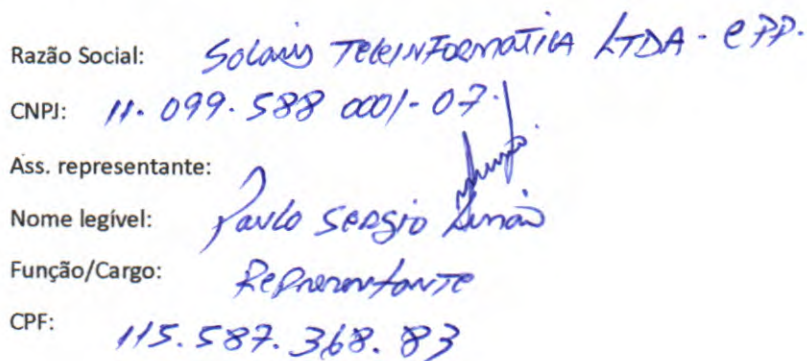 Razão Social: Solaris TELEINFORMATICA LTDA - EPP.
CNPJ: 11.099.588 0001-07.
Ass. representante:
Nome legível: Paulo Sergio Simão
Função/Cargo: Representante
CPF: 115.587.368.83